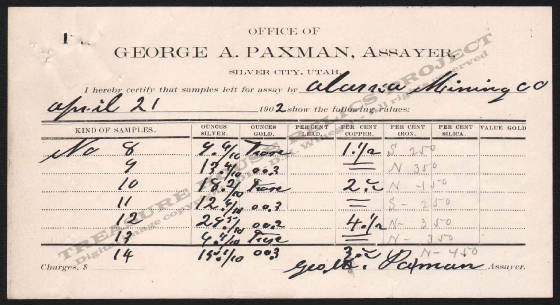 OFFICE OF
GEORGE A. PAXMAN, ASSAYER,
SILVER CITY, UTAH.
I hereby certify that samples left for assay by Mining Co
April 21 1902 show the following values:
KIND OF SAMPLES. OUNCES SILVER. OUNCES GOLD. PER CENT LEAD. PER CENT COPPER. PER CENT IRON. PER CENT SILICA. VALUE GOLD
No 8 9.4/10 Trace 1.1/2 S- 250
9 13.4/10 003 = N- 350
10 18.2/10 Trace 2 N- 450
11 12.4/10 003 = S- 250
12 002 4.1/2 N- 350
13 Trace = N- 350
14 003 3 N- 450
Charges, $ Geo A. Paxman Assayer.
TREASURE HOUSE RELICS PROJECT